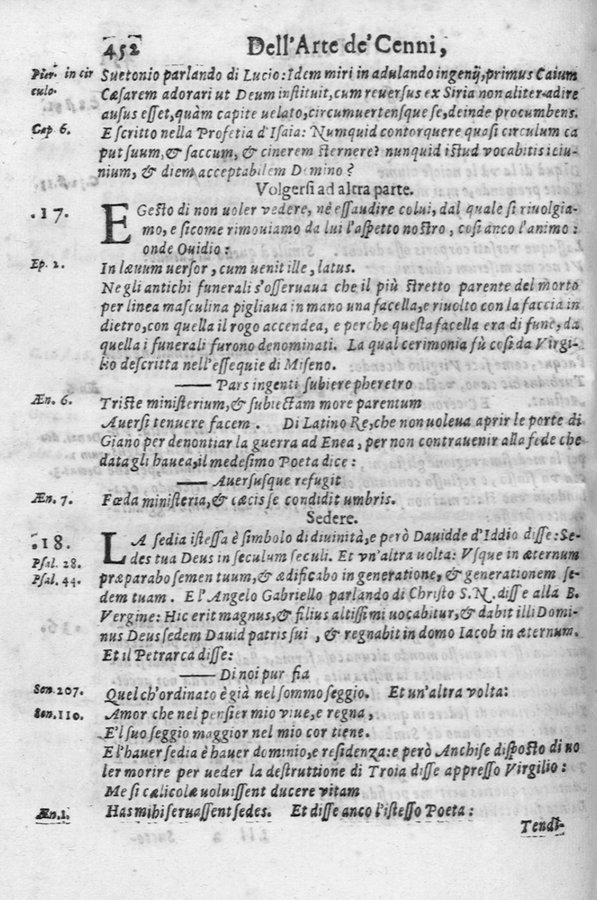 452 Dell'Arte de' Cenni,
Pier. in cir Suetonio parlando di Lucio: Idem miri in adulando ingenij, primus Caium
culo. Cæsarem adorari ut Deum instituit, cum reuersus ex Siria non aliter adire
ausus esset, quàm capite uelato, circumuertensque se, deinde procumbens.
Cap. 6. E scritto nella Profetia d'Isaia: Numquid contorquere quasi circulum ca
put suum, & saccum, & cinerem sternere? nunquid istud vocabitis ieiu-
nium, & diem acceptabilem Domino?
Volgersi ad altra parte.
.17. E Gesto di non uoler vedere, nè essaudire colui, dal quale si riuolgia-
mo, e sicome rimouiamo da lui l'aspetto nostro, così anco l'animo:
onde Ouidio:
Ep. 2. In læuum uersor, cum uenit ille, latus.
Negli antichi funerali s'osseruaua che il più stretto parente del morto
per linea masculina pigliaua in mano una facella, e riuolto con la faccia in
dietro, con quella il rogo accendea, e perche questa facella era di fune, da
quella i funerali furono denominati. La qual cerimonia fù così da Virgi-
lio descritta nell'essequie di Miseno.
—— Pars ingenti subiere pheretro
Æn. 6. Triste ministerium, & subiectam more parentum
Auersi tenuere facem. Di Latino Re, che non uoleua aprir le porte di
Giano per denontiar la guerra ad Enea, per non contrauenir alla fede che
data gli hauea, il medesimo Poeta dice:
—— Auersusque refugit
Æn. 7. Fœda ministeria, & cæcis se condidit umbris.
Sedere.
.18. LA sedia istessa è simbolo di diuinità, e però Dauidde d'Iddio disse: Se-
Psal. 28. des tua Deus in seculum seculi. Et vn'altra uolta: Vsque in æternum
Psal. 44. præparabo semen tuum, & ædificabo in generatione, & generationem se-
dem tuam. E l'Angelo Gabriello parlando di Christo S. N. disse alla B.
Vergine: Hic erit magnus, & filius altissimi uocabitur, & dabit illi Domi-
nus Deus sedem Dauid patris sui, & regnabit in domo Iacob in æternum.
Et il Petrarca disse:
—— Di noi pur fia
Son. 207. Quel ch'ordinato è già nel sommo seggio. Et un'altra volta:
Son. 110. Amor che nel pensier mio viue, e regna,
E'l suo seggio maggior nel mio cor tiene.
E l'hauer sedia è hauer dominio, e residenza: e però Anchise disposto di uo
ler morire per ueder la destruttione di Troia disse appresso Virgilio:
Me si cælicolæ uoluissent ducere vitam
Æn. 1. Has mihi seruassent sedes. Et disse anco l'istesso Poeta:
Tendi-